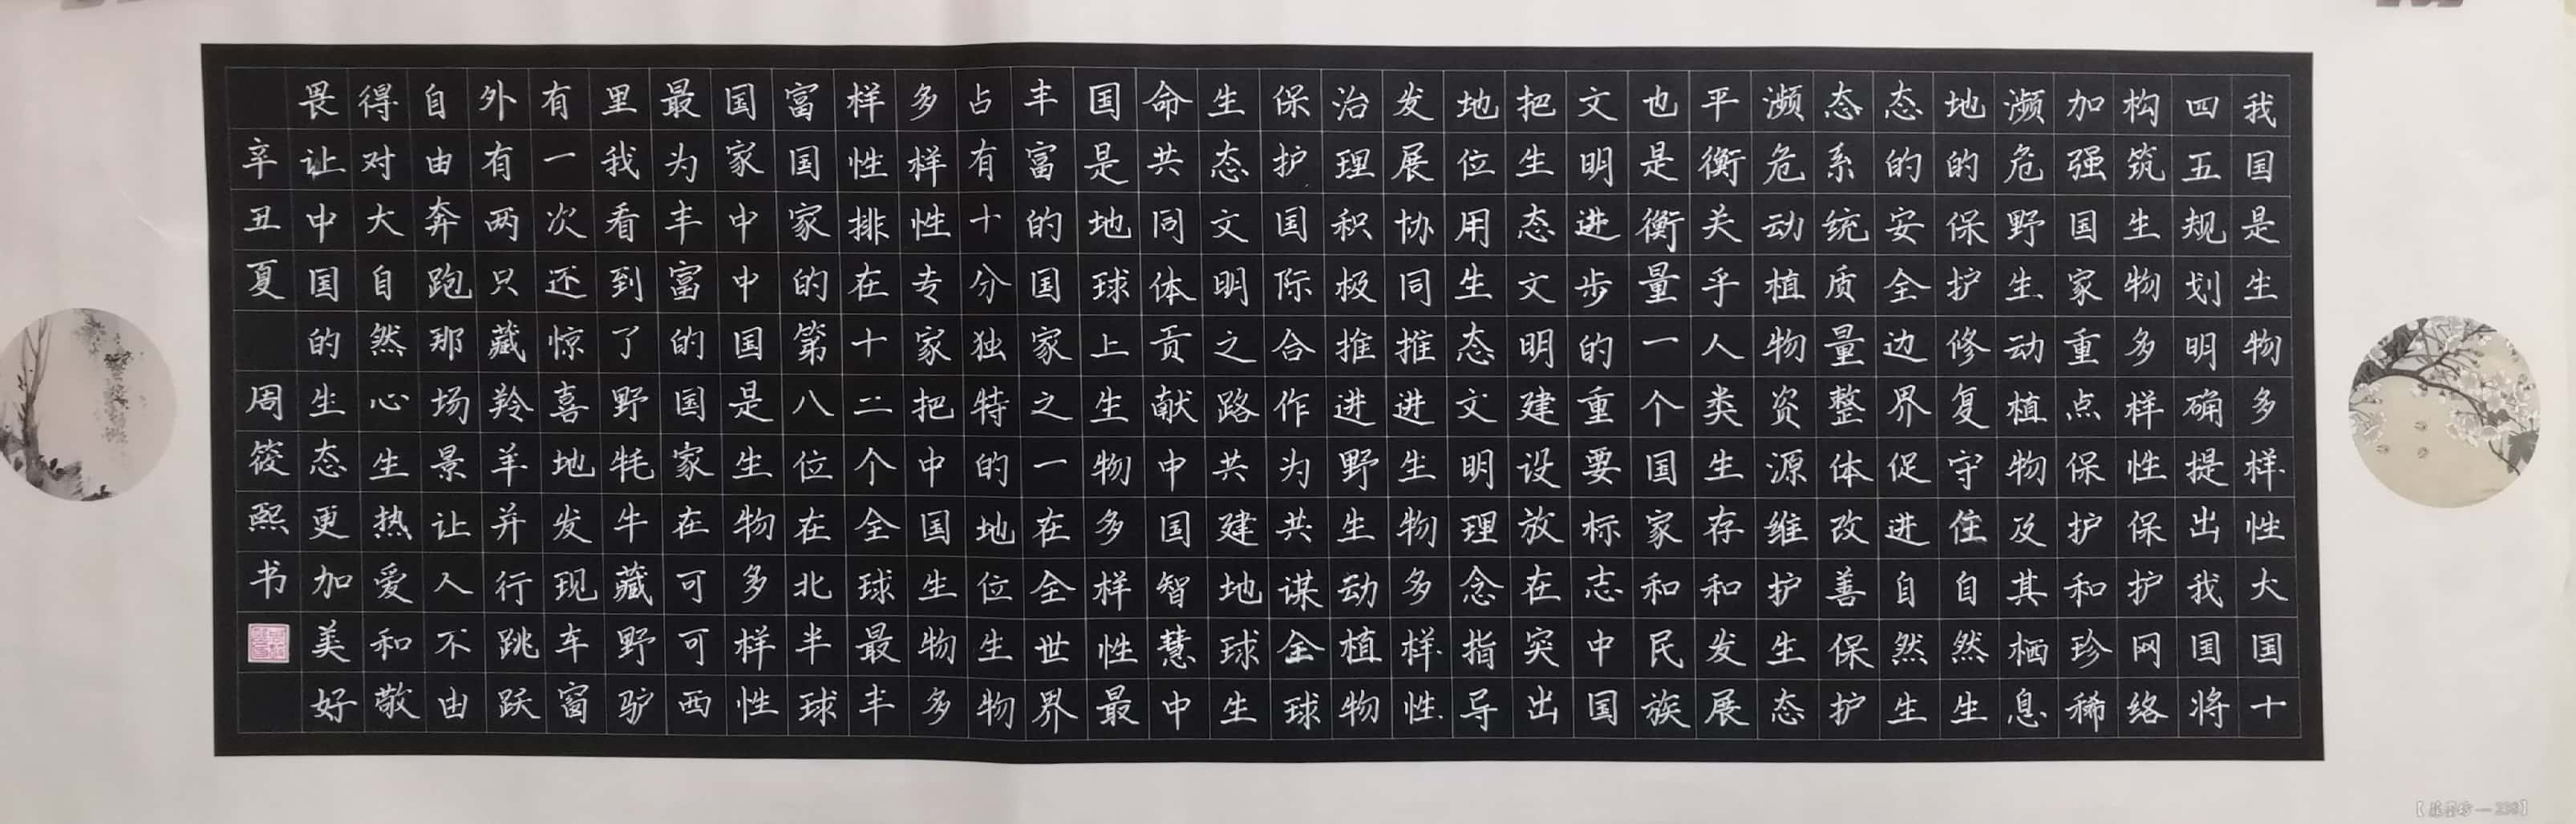 我国是生物多样性大国十
四五规划明确提出我国将
构筑生物多样性保护网络
加强国家重点保护和珍稀
濒危野生动植物及其栖息
地的保护修复守住自然生
态的安全边界促进自然生
态系统质量整体改善保护
濒危动植物资源维护生态
平衡关乎人类生存和发展
也是衡量一个国家和民族
文明进步的重要标志中国
把生态文明建设放在突出
地位用生态文明理念指导
发展协同推进生物多样性
治理积极推进野生动植物
保护国际合作为共谋全球
生态文明之路共建地球生
命共同体贡献中国智慧中
国是地球上生物多样性最
丰富的国家之一在全世界
占有十分独特的地位生物
多样性专家把中国生物多
样性排在十二个全球最丰
富国家的第八位在北半球
国家中中国是生物多样性
最为丰富的国家在可可西
里我看到了野牦牛藏野驴
有一次还惊喜地发现车窗
外有两只藏羚羊并行跳跃
自由奔跑那场景让人不由
得对大自然心生热爱和敬
畏让中国的生态更加美好
辛丑夏 周筱熙书